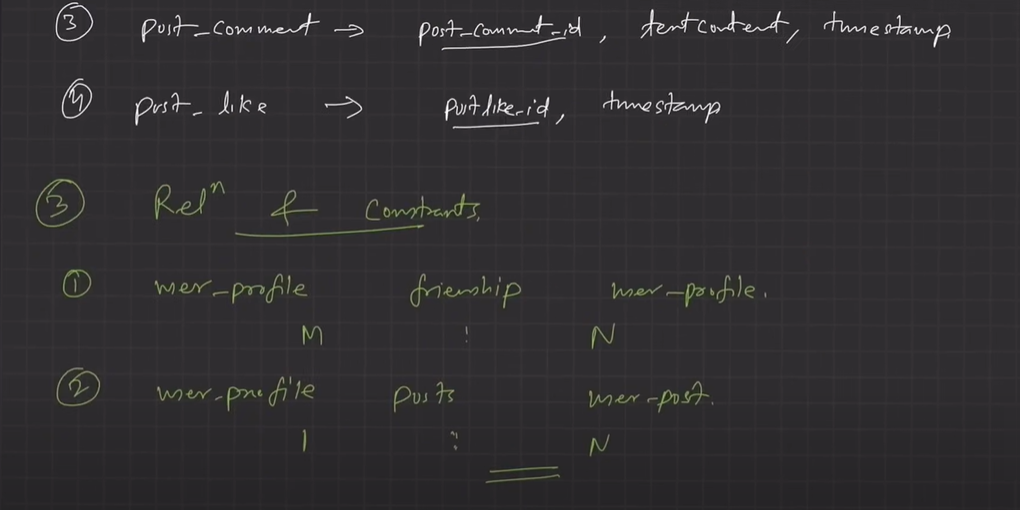 ③ post_comment → post_comment_id, textcontent, timestamp
④ post_like → postlike_id, timestamp
③ Relⁿ & Constraints,
① user-profile frienship user-profile.
M : N
② user-profile posts user-post.
1 : N